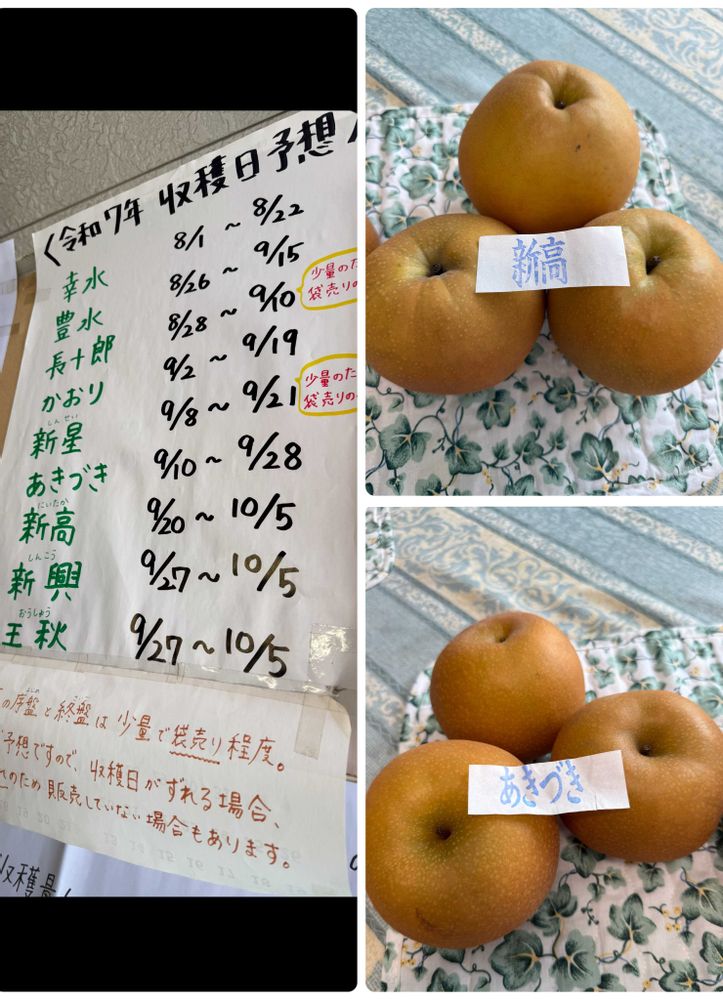 〈令和7年 収穫日予想
幸水 8/1 ~ 8/22
豊水 8/26 ~ 9/15
長十郎 8/28 ~ 9/10
少量のた
袋売りの
かおり 9/2 ~ 9/19
しんせい
新星 9/8 ~ 9/21
少量のた
袋売りの
あきづき 9/10 ~ 9/28
にいたか
新高 9/20 ~ 10/5
しんこう
新興 9/27 ~ 10/5
おうしゅう
王秋 9/27 ~ 10/5
の序盤と終盤は少量で袋売り程度。
予想ですので、収穫日がずれる場合、
れのため販売していない場合もあります。
収穫量
新高
あきづき